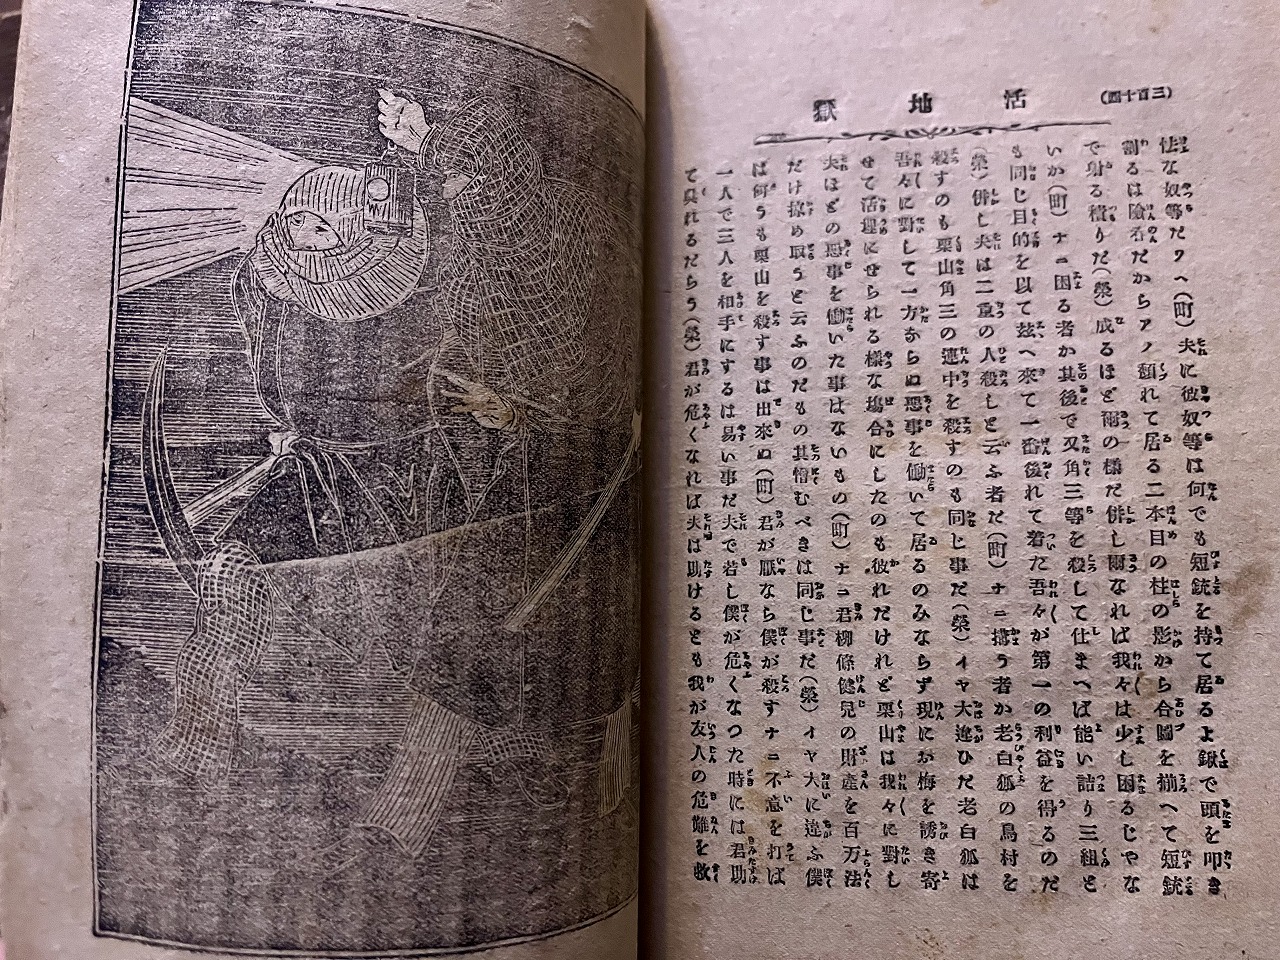 (三百十四)
活地獄
怯な奴等だワヘ(町)夫に彼奴等は何でも短銃を持て居るよ鍬で頭を叩き
割るは陰呑だからアノ頽れて居る二本目の柱の影から合圖を揃へて短銃
で射る積りだ(榮)成るほど爾の様だ併し爾なれば我々は少し困るじやな
いか(町)ナニ困る者か其後で又角三等を殺して仕まへば能い詰り三組と
も同じ目的を以て玆へ來て一番後れて着た吾々が第一の利益を得るのだ
(榮)併し夫は二重の人殺しと云ふ者だ(町)ナニ搆う者か老白狐の鳥村を
殺すのも栗山角三の連中を殺すのも同じ事だ(榮)イヤ大違ひだ老白狐は
吾々に對して一方からぬ悪事を働いて居るのみならず現にお梅を誘き寄
せて活埋にせられる様な塲合にしたのも彼れだけれど栗山は我々に對し
夫ほどの悪事を働いた事はないもの(町)ナニ君柳條健兒の財產を百万法
だけ掠め取うと云ふのだもの其惜むべきは同じ事だ(榮)イヤ大に違ふ僕
は何うも栗山を殺す事は出來ぬ(町)君が厭なら僕が殺すナニ不意を打ば
一人で三人を相手にするは易い事だ夫で若し僕が危くなつた時には君助
て呉れるだらう(榮)君が危くなれば夫は助けるとも我が友人の危難を救